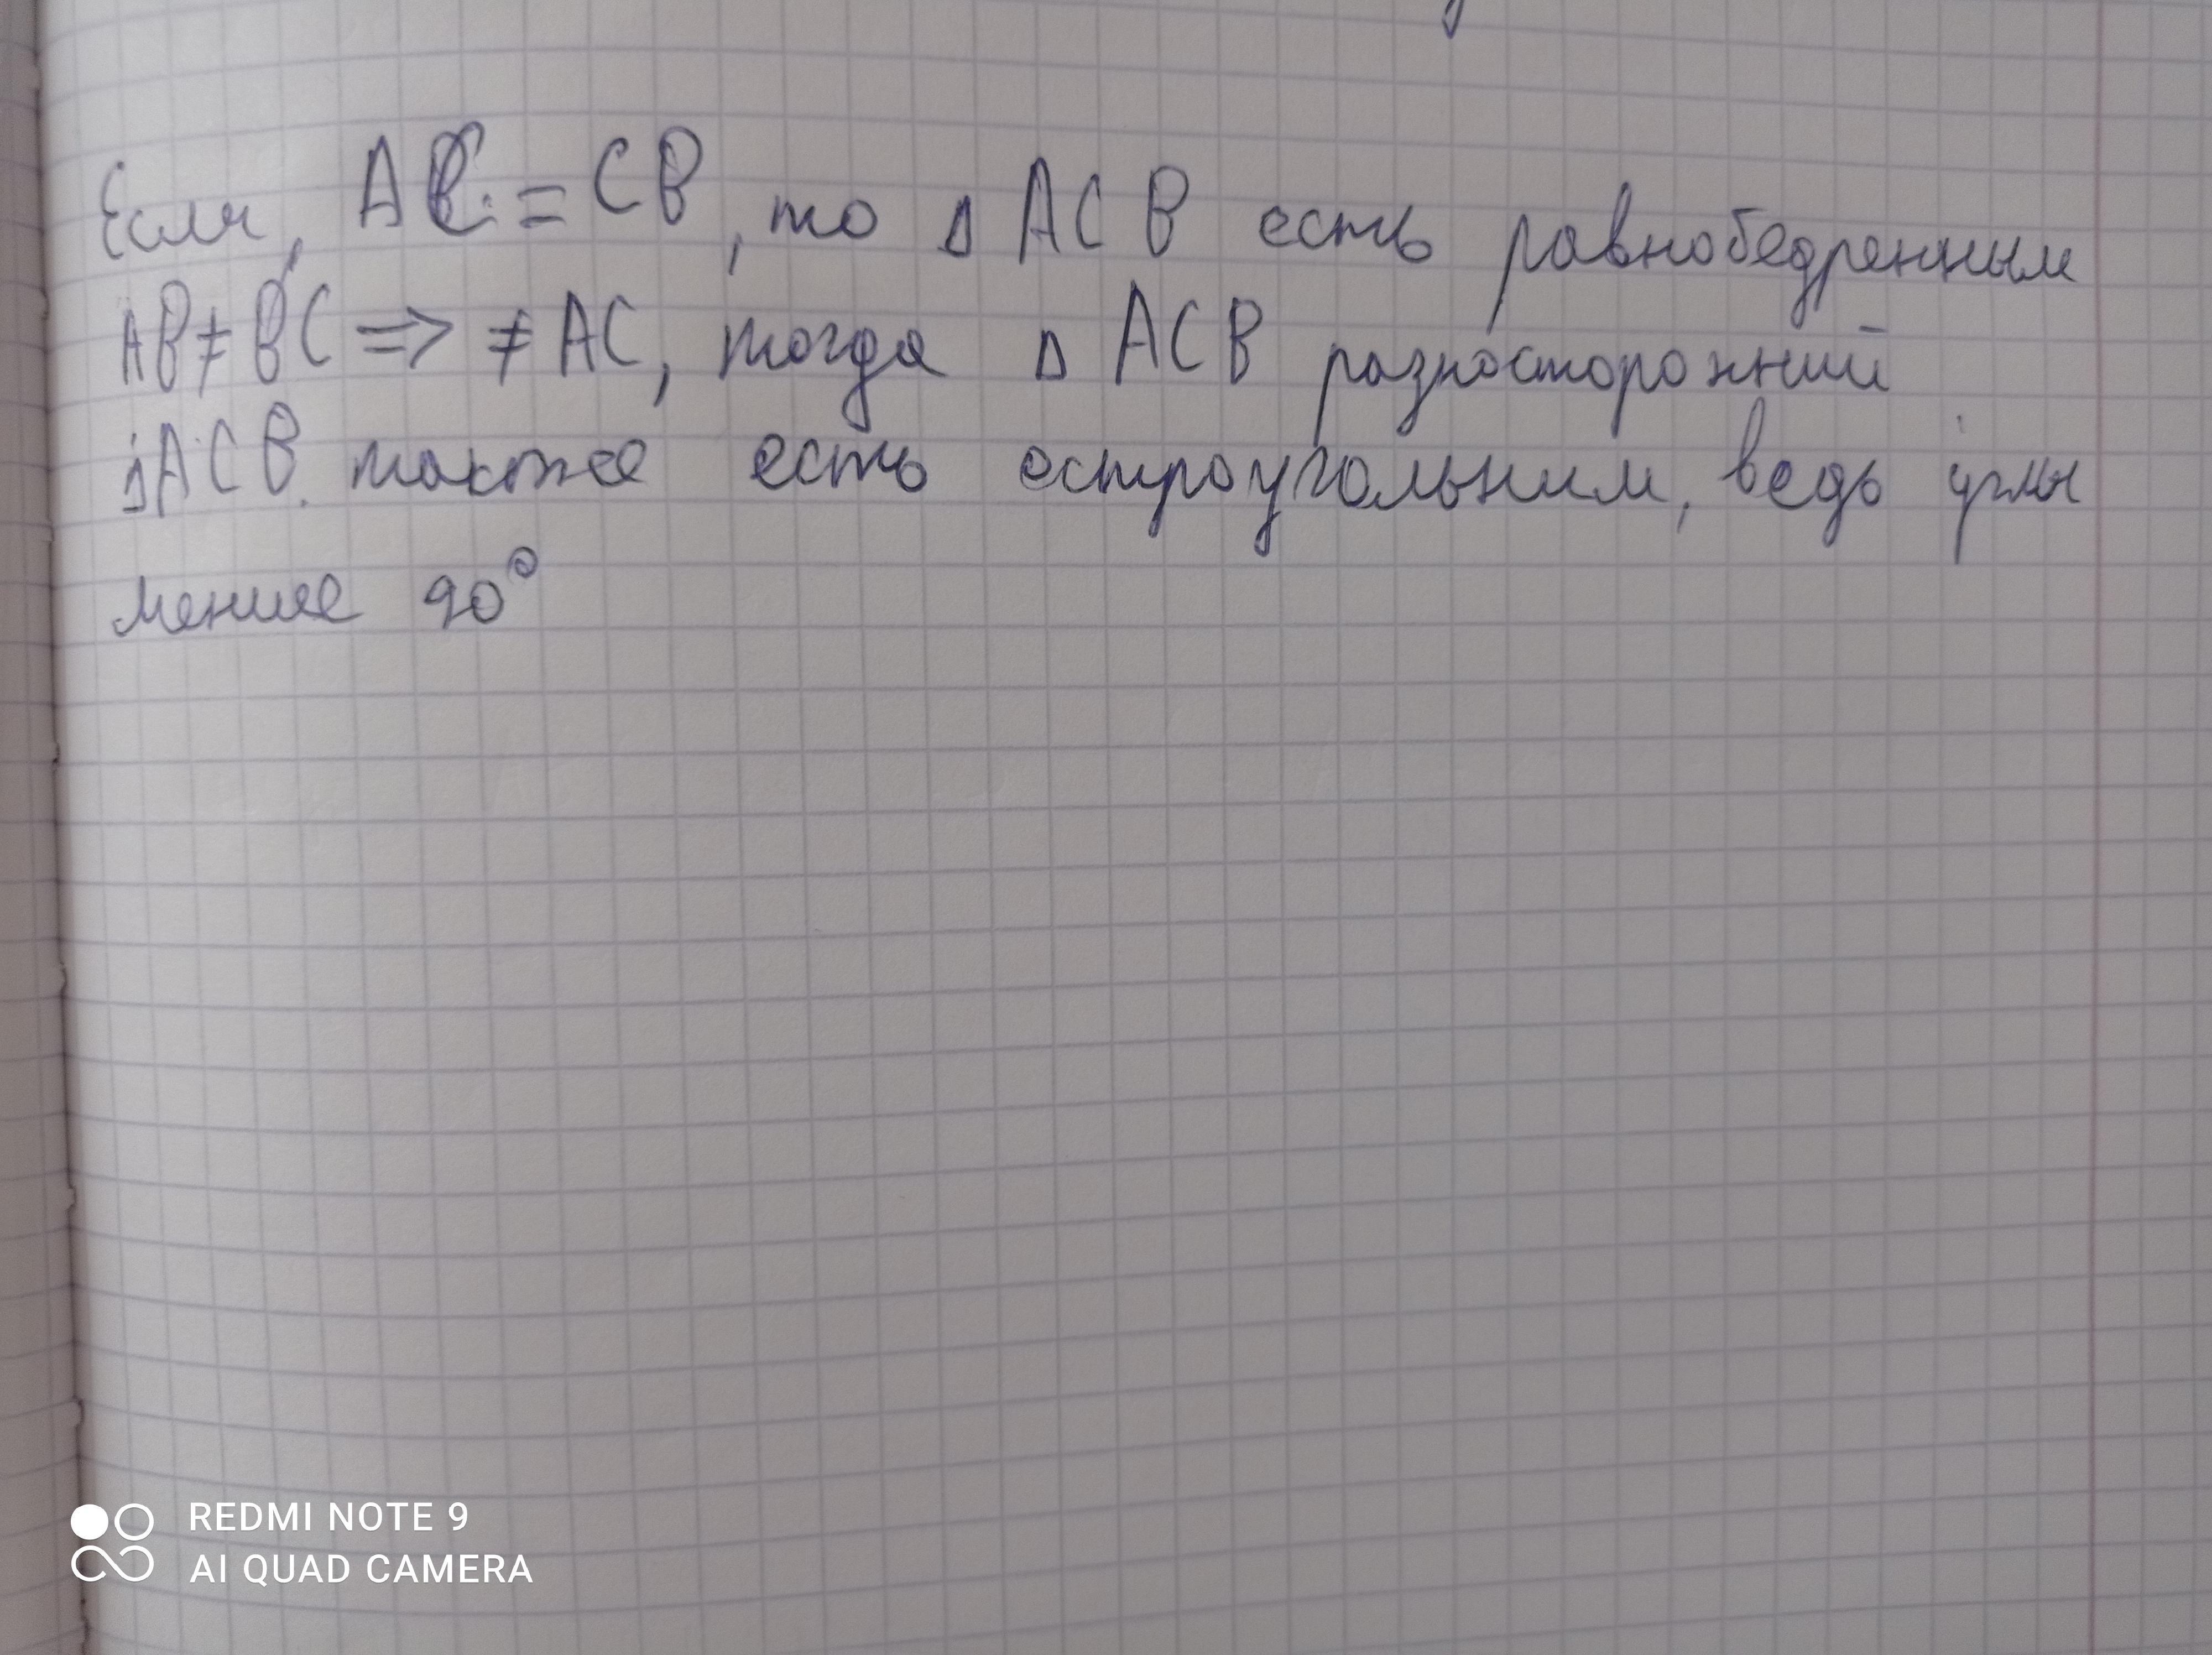 Если, AC = CB, то Δ ACB есть равнобедренным
AB ≠ BC => ≠ AC, тогда Δ ACB разносторонний
ΔACB также есть остроугольним, ведь углы
менше 90°
REDMI NOTE 9
AI QUAD CAMERA